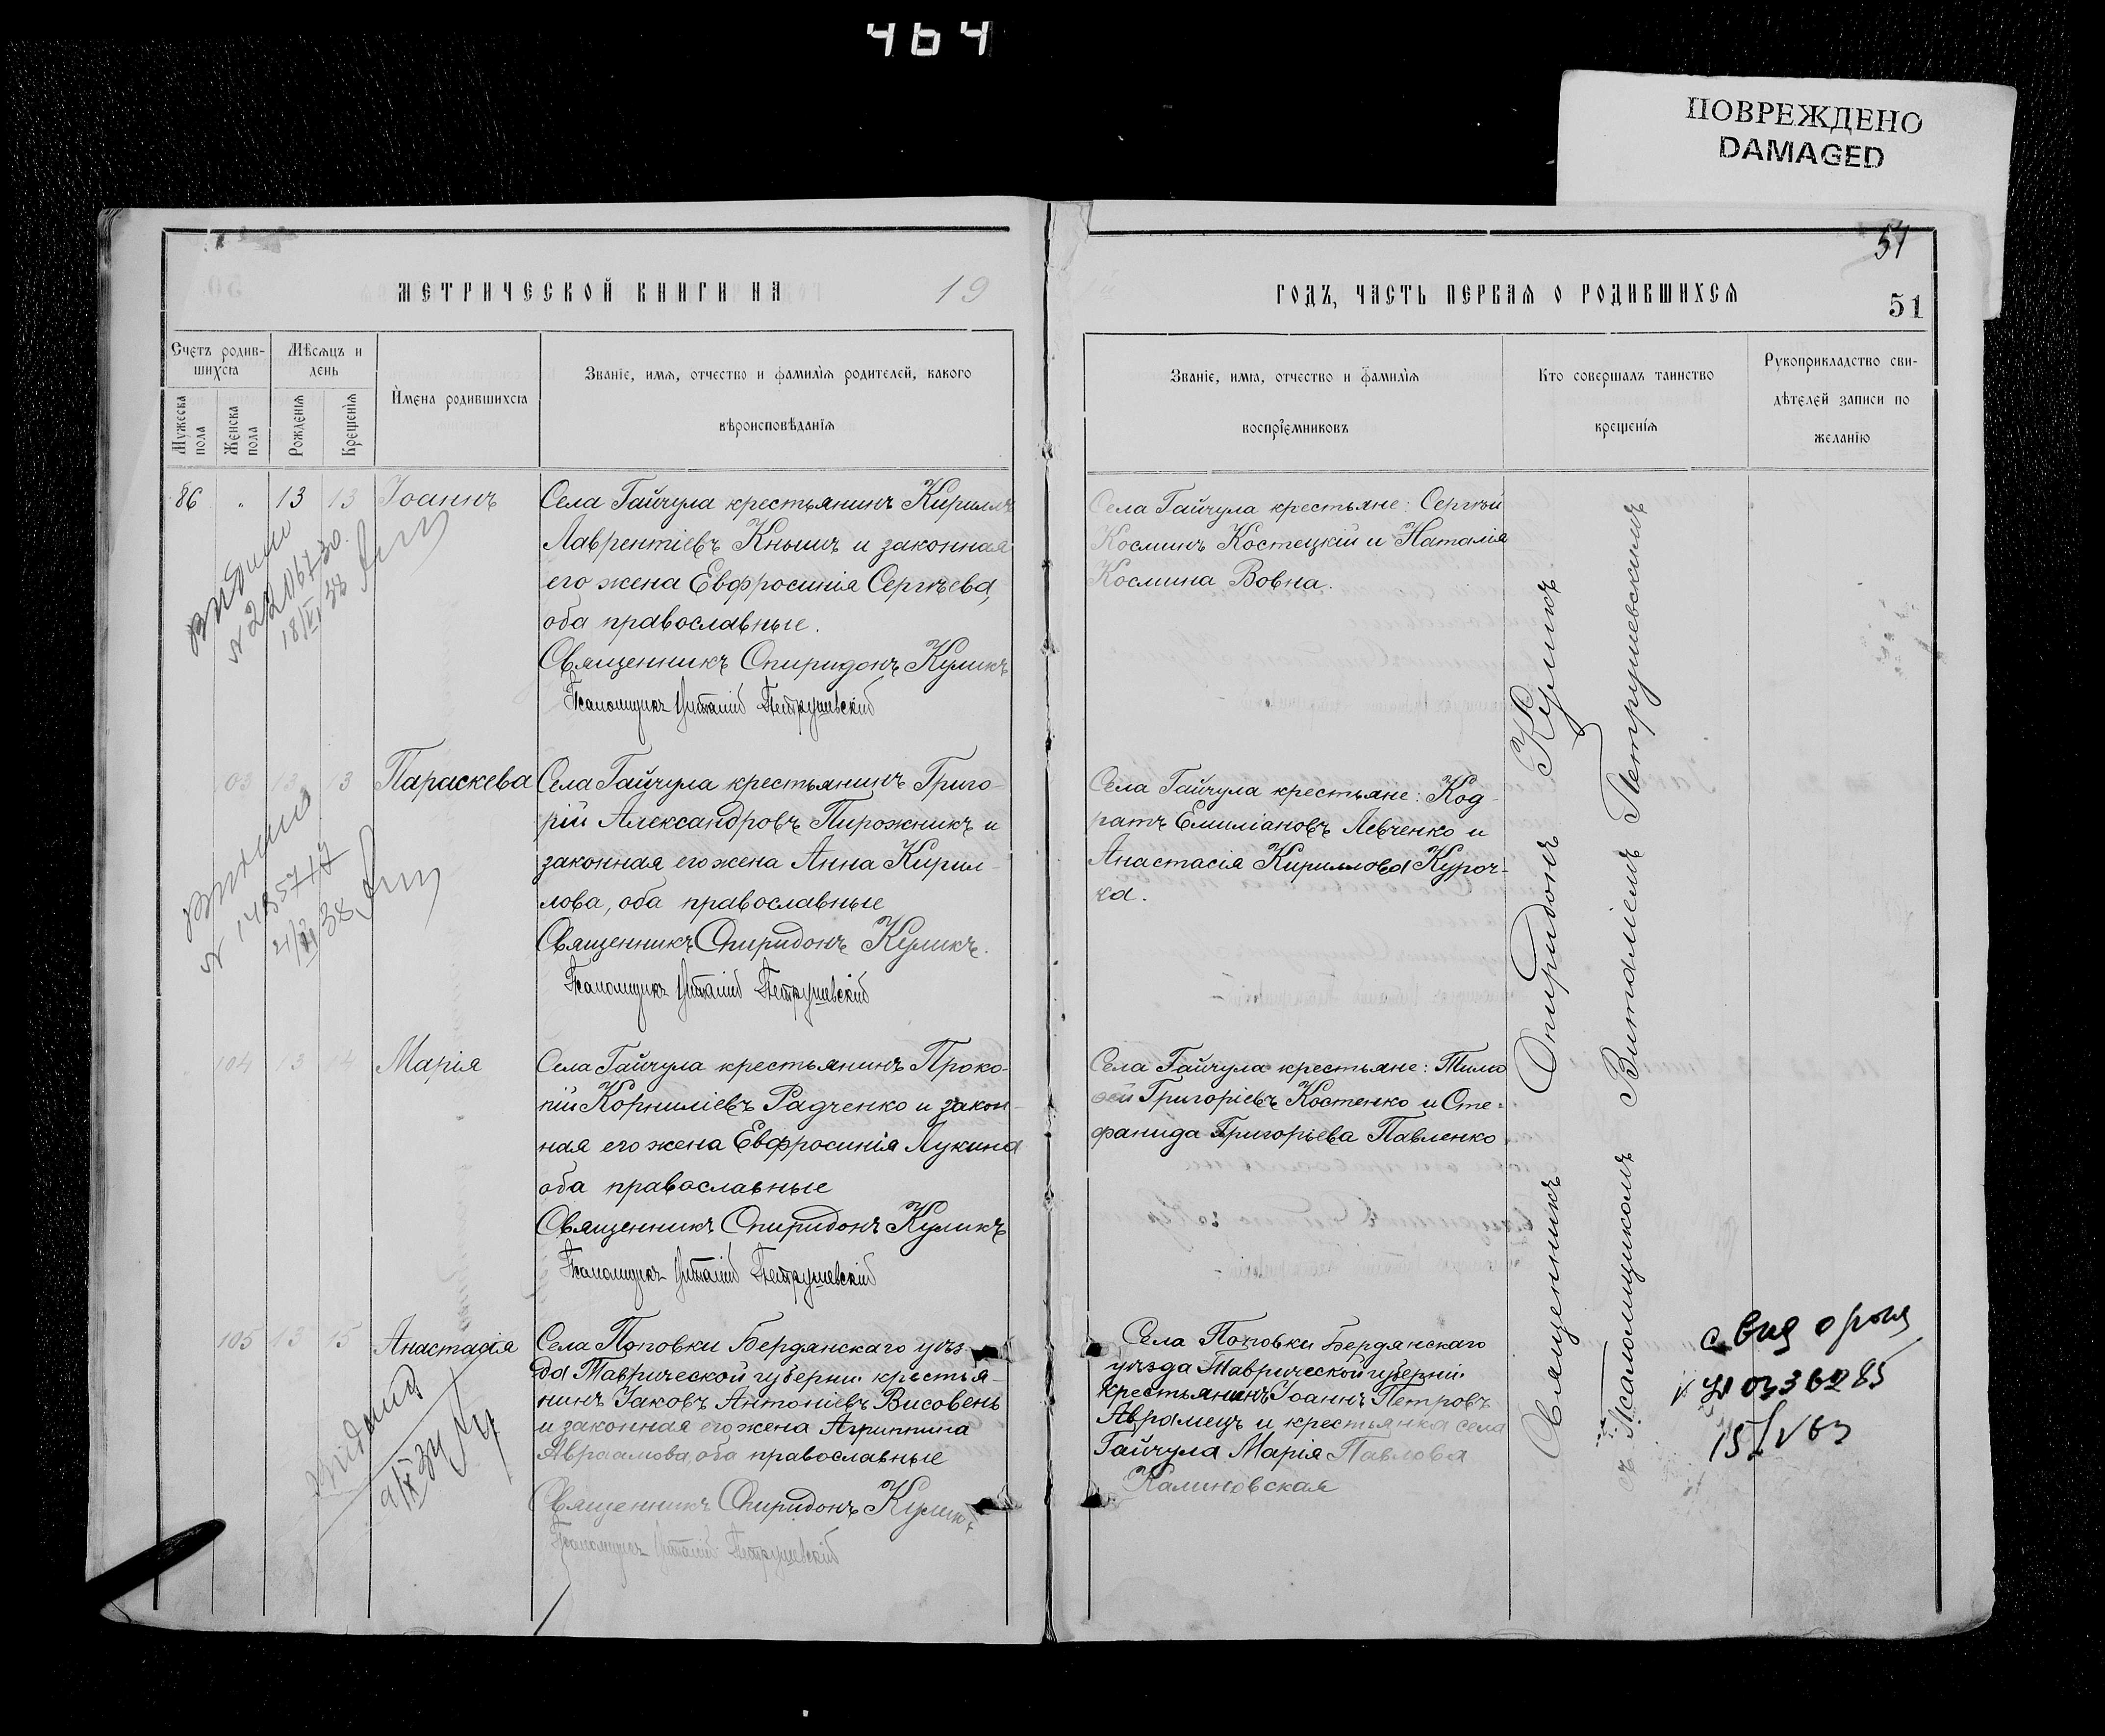 464
ПОВРЕЖДЕНО
DAMAGED
51
МЕТРИЧЕСКОЙ КНИГИ НА 19
ГОДЪ, ЧАСТЬ ПЕРВАЯ О РОДИВШИХСЯ
51
Счетъ родившихся
Мѣсяцъ и день
Имена родившихся
Званіе, имя, отчество и фамилія родителей, какого вѣроисповѣданія
Мужеска пола
Женска пола
Рожденія
Крещенія
Званіе, имя, отчество и фамилія воспріемниковъ
Кто совершалъ таинство крещенія
Рукоприкладство свидѣтелей записи по желанію
86 " 13 13 Іоаннъ
Села Гайчула крестьянинъ Кириллъ
Лаврентіевъ Кнышъ и законная
его жена Евфросинія Сергѣева,
оба православные.
Священникъ Спиридонъ Куликъ
Псаломщикъ Виталій Петрушевскій
Села Гайчула крестьяне: Сергѣй
Косминъ Костецкій и Наталія
Космина Вовна.
103 13 13 Параскева
Села Гайчула крестьянинъ Григо-
рій Александровъ Пирожникъ и
законная его жена Анна Кирил-
лова, оба православные
Священникъ Спиридонъ Куликъ.
Псаломщикъ Виталій Петрушевскій
Села Гайчула крестьяне: Код-
ратъ Емиліановъ Левченко и
Анастасія Кириллова Куроч-
ка.
104 13 14 Марія
Села Гайчула крестьянинъ Проко-
пій Корниліевъ Радченко и закон-
ная его жена Евфросинія Лукина
оба православные
Священникъ Спиридонъ Куликъ
Псаломщикъ Виталій Петрушевскій
Села Гайчула крестьяне: Тимо
ѳей Григоріевъ Костенко и Сте-
фанида Григорьева Павленко
105 13 15 Анастасія
Села Поповки Бердянскаго уѣз-
да Таврической губерніи крестья-
нинъ Іаковъ Антоніевъ Висовень
и законная его жена Агриппина
Авраамова, оба православные
Священникъ Спиридонъ Куликъ
Псаломщикъ Виталій Петрушевскій
Села Поповки Бердянскаго
уѣзда Таврической губерніи
крестьянинъ Іоаннъ Петровъ
Аврамецъ и крестьянка села
Гайчула Марія Павлова
Калиновская
Священникъ Спиридонъ Куликъ
съ Псаломщикомъ Виталіемъ Петрушевскимъ